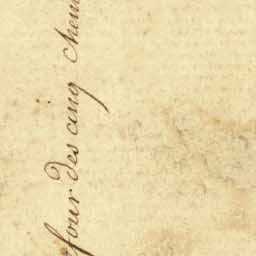 four des cinq chem